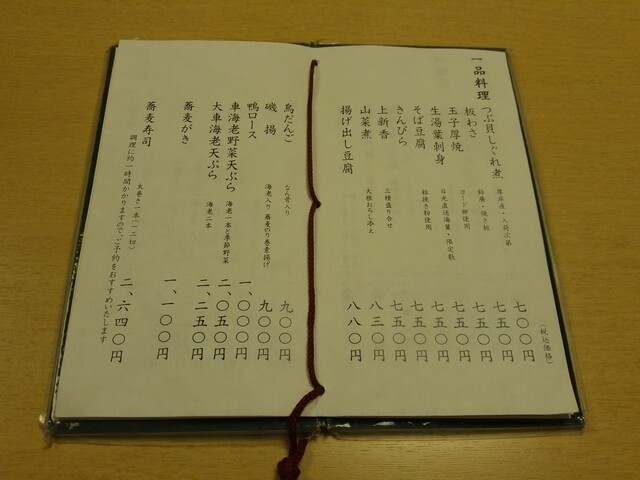 一品料理
（税込価格）
つぶ貝しぐれ煮 厚岸産・入荷次第 七〇〇円
板わさ 鈴廣・焼き板 七五〇円
玉子厚焼 ヨード卵使用 七五〇円
生湯葉刺身 日光直送湯葉・限定数 七五〇円
そば豆腐 粗挽き粉使用 七五〇円
きんぴら 七五〇円
上新香 三種盛り合せ 八三〇円
山菜煮 大根おろし添え 八八〇円
揚げ出し豆腐
鳥だんご なん骨入り 九〇〇円
磯揚 海老入り 蕎麦のり巻素揚げ 九〇〇円
鴨ロース 一、〇〇〇円
車海老野菜天ぷら 海老一本と季節野菜 二、〇五〇円
大車海老天ぷら 海老二本 二、二五〇円
蕎麦がき 一、一〇〇円
蕎麦寿司 太巻き一本（一二切） 二、六四〇円
調理に約一時間かかりますので、ご予約をおすすめいたします